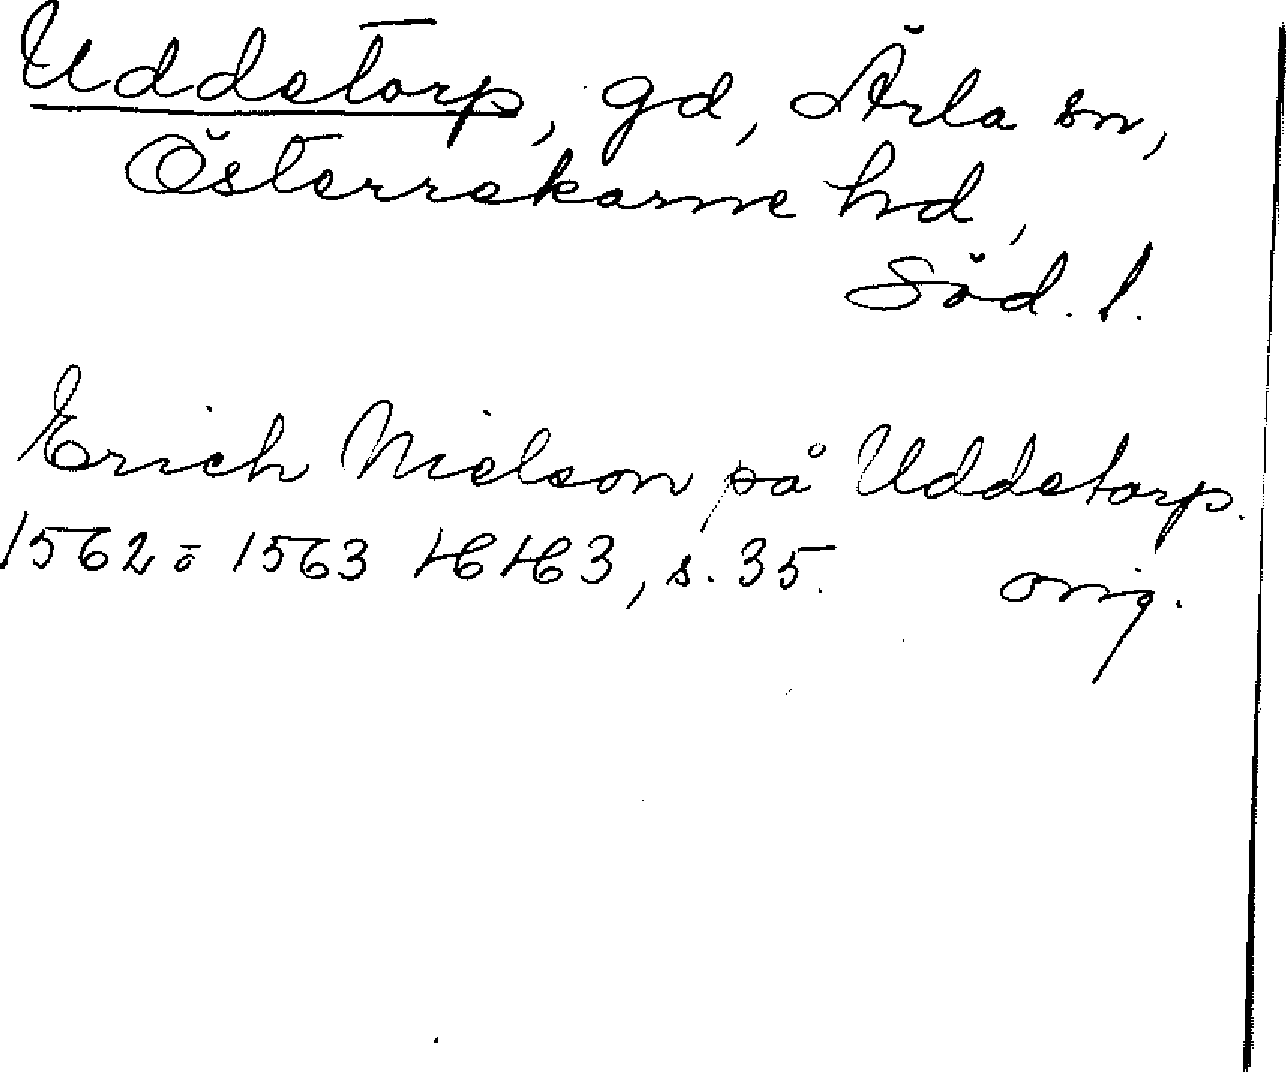 Uddetorp, gd, Ärla sn,
Österrekarne hd,
Söd. l.
Erich Nielson på Uddetorp.
1562 ö 1563 HH3, s. 35. orig.